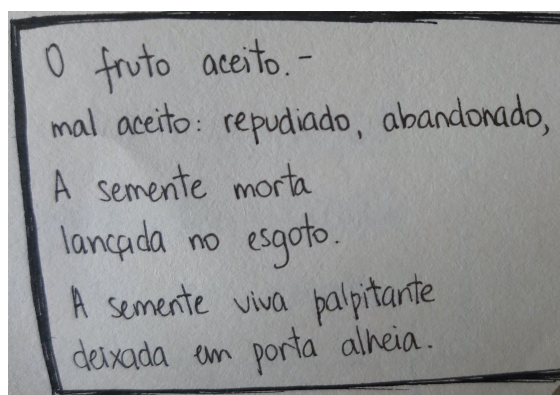 O fruto aceito.-
mal aceito: repudiado, abandonado,
A semente morta
lançada no esgoto.
A semente viva palpitante
deixada em porta alheia.